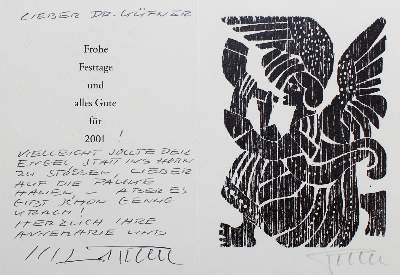 LIEBER DR. KÜFNER
Frohe
Festtage
und
alles Gute
für
2001 !
VIELLEICHT SOLLTE DER
ENGEL STATT INS HORN
ZU STOßEN, LIEBER
AUF DIE PAUKE
HAUEN – ABER ES
GIBT SCHON GENUG
KRACH!
HERZLICH IHRE
ANNEMARIE UND